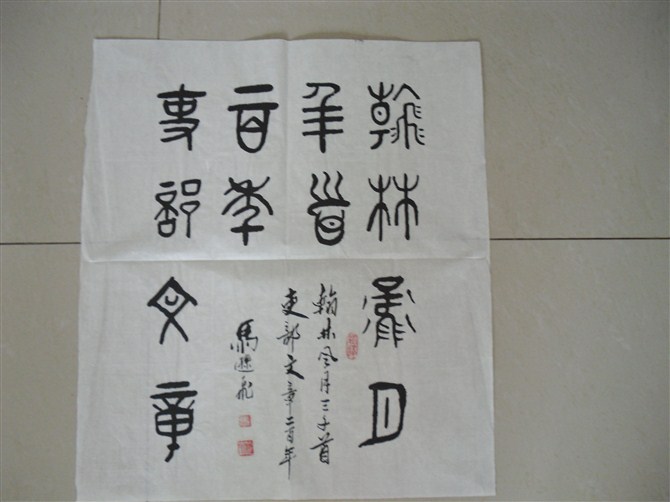 翰林風月
三千首
吏部文章
二百年
翰林风月三千首
吏部文章二百年
馬